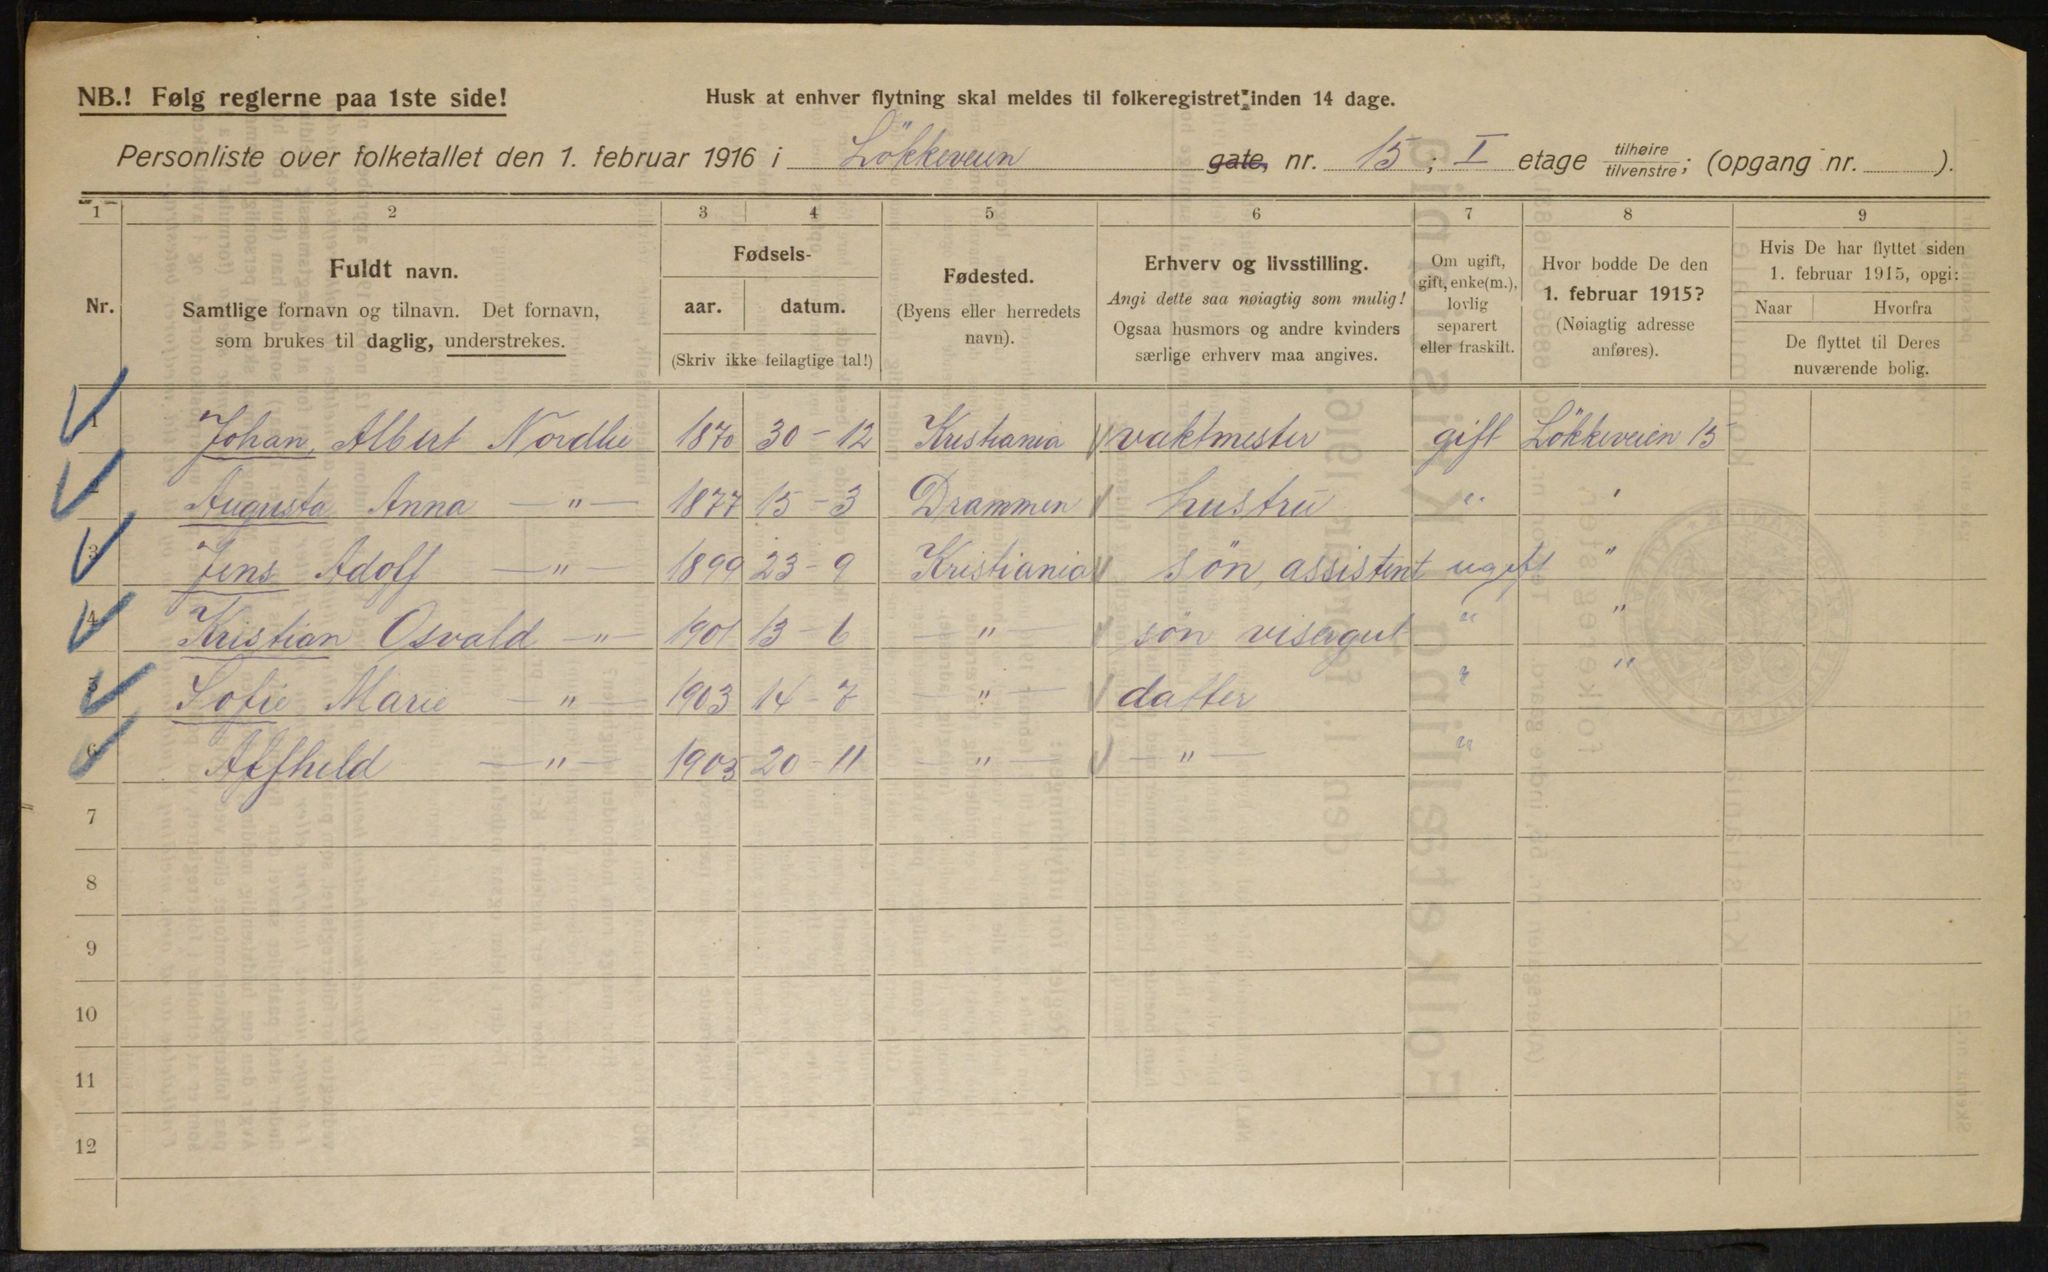 NB.! Følg reglerne paa 1ste side!
Husk at enhver flytning skal meldes til folkeregistret inden 14 dage.
Personliste over folketallet den 1. februar 1916 i Lökkeveien gate, nr. 15; I etage tilhøire/tilvenstre; (opgang nr. ).
1 2 3 4 5 6 7 8 9
Nr.
Fuldt navn.
Samtlige fornavn og tilnavn. Det fornavn,
som brukes til daglig, understrekes.
Fødsels-
aar. datum.
(Skriv ikke feilagtige tal!)
Fødested.
(Byens eller herredets
navn).
Erhverv og livsstilling.
Angi dette saa nøiagtig som mulig!
Ogsaa husmors og andre kvinders
særlige erhverv maa angives.
Om ugift,
gift, enke(m.),
lovlig
separert
eller fraskilt.
Hvor bodde De den
1. februar 1915?
(Nøiagtig adresse
anføres).
Hvis De har flyttet siden
1. februar 1915, opgi:
Naar Hvorfra
De flyttet til Deres
nuværende bolig.
1 Johan, Albert Nordlie 1870 30-12 Kristiania vaktmester gift Lökkeveien 15
2 Augusta Anna —"— 1877 15-3 Drammen hustru " "
3 Jens Adolf —"— 1899 23-9 Kristiania sön, assistent ugift "
4 Kristian Osvald —"— 1901 13-6 —"— sön visergut " "
5 Sofie Marie —"— 1903 14-7 —"— datter " "
6 —"— 1905 20-11 —"— —"— "
7
8
9
10
11
12